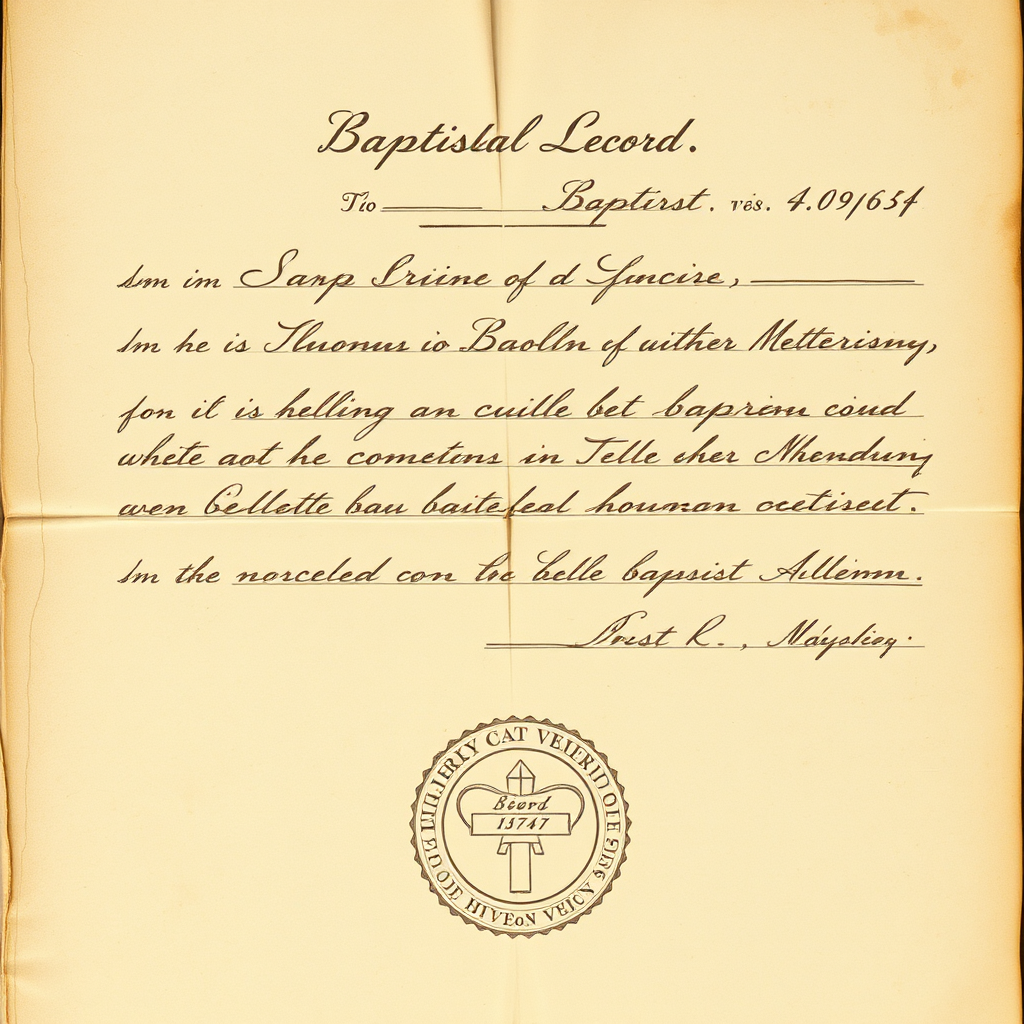 Baptistal Lecord.
Tio Baptirst. vës. 4.09/654
Sm im Sanp Sriine of d Yuncire,
Im he is Tluonus io Baolln of uither Metterisny,
fon it is helling an cuille bet baprinu coud
whete aot he cometins in Telle cher Nhendunj
aven Cellette bau baitefeal houman octiseet.
Im the norceled con loe belle bapsist Allemm.
Prest R. , Máysliey.
CAT
Beord
15747